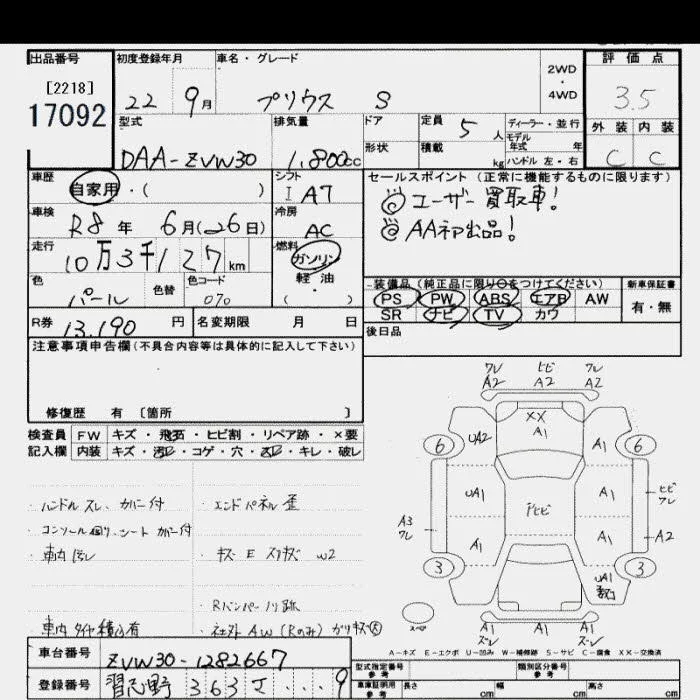 出品番号
[2218]
17092
初度登録年月
22 9月
車名・グレード
プリウス S
2WD
・
4WD
評価点
3.5
外装 内装
C C
型式
DAA-ZVW30
排気量
1,800cc
ドア
形状
定員 5人
積載 kg
ディーラー・並行
モデル
年式 年
ハンドル 左・右
車歴
自家用・( )
シフト
I A7
車検
R8年 6月(26日)
冷房
AC
走行
10万3千127km
燃料
ガソリン
軽油
・
( )
色
パール
色替
色コード
070
R券 13,190円
名変期限 月 日
セールスポイント(正常に機能するものに限ります)
◎ユーザー買取車!
◎AA初出品!
装備品(純正品に限り○をつけてください)
PS PW ABS エアB AW
SR ナビ TV カワ
新車保証書
有・無
後日品
注意事項申告欄(不具合内容等は具体的に記入して下さい)
修復歴 有 〔箇所 〕
検査員
記入欄
FW キズ・飛石・ヒビ割・リペア跡・×要
内装 キズ・汚れ・コゲ・穴・・キレ・破レ
・ハンドルスレ、カバー付
・コンソール、シートカバー付
・車内汚レ
車内タイヤ積
・エンドパネル歪
・キズ E W2
・Rバンパー
・社外AW(Rのみ)ガリキズ大
ワレ ヒビ ワレ
A2 A2 A2
XX
A1
6 UA2 A1 6
UA1 ヒビ A1
ヒビ
ワレ
A3
ワレ
A1 A1 A2
3 3
UA1
スペア
A1 A1 A1
ズレ ズレ
A-キズ E-エクボ U-凹み W-補修跡 S-サビ C-腐食 XX-交換済
車台番号
ZVW30-1282667
登録番号
習志野 363 さ ・・・9
型式指定番号
参考
類別区分番号
参考
車庫証明用
参考
長さ cm
幅 cm
高さ cm